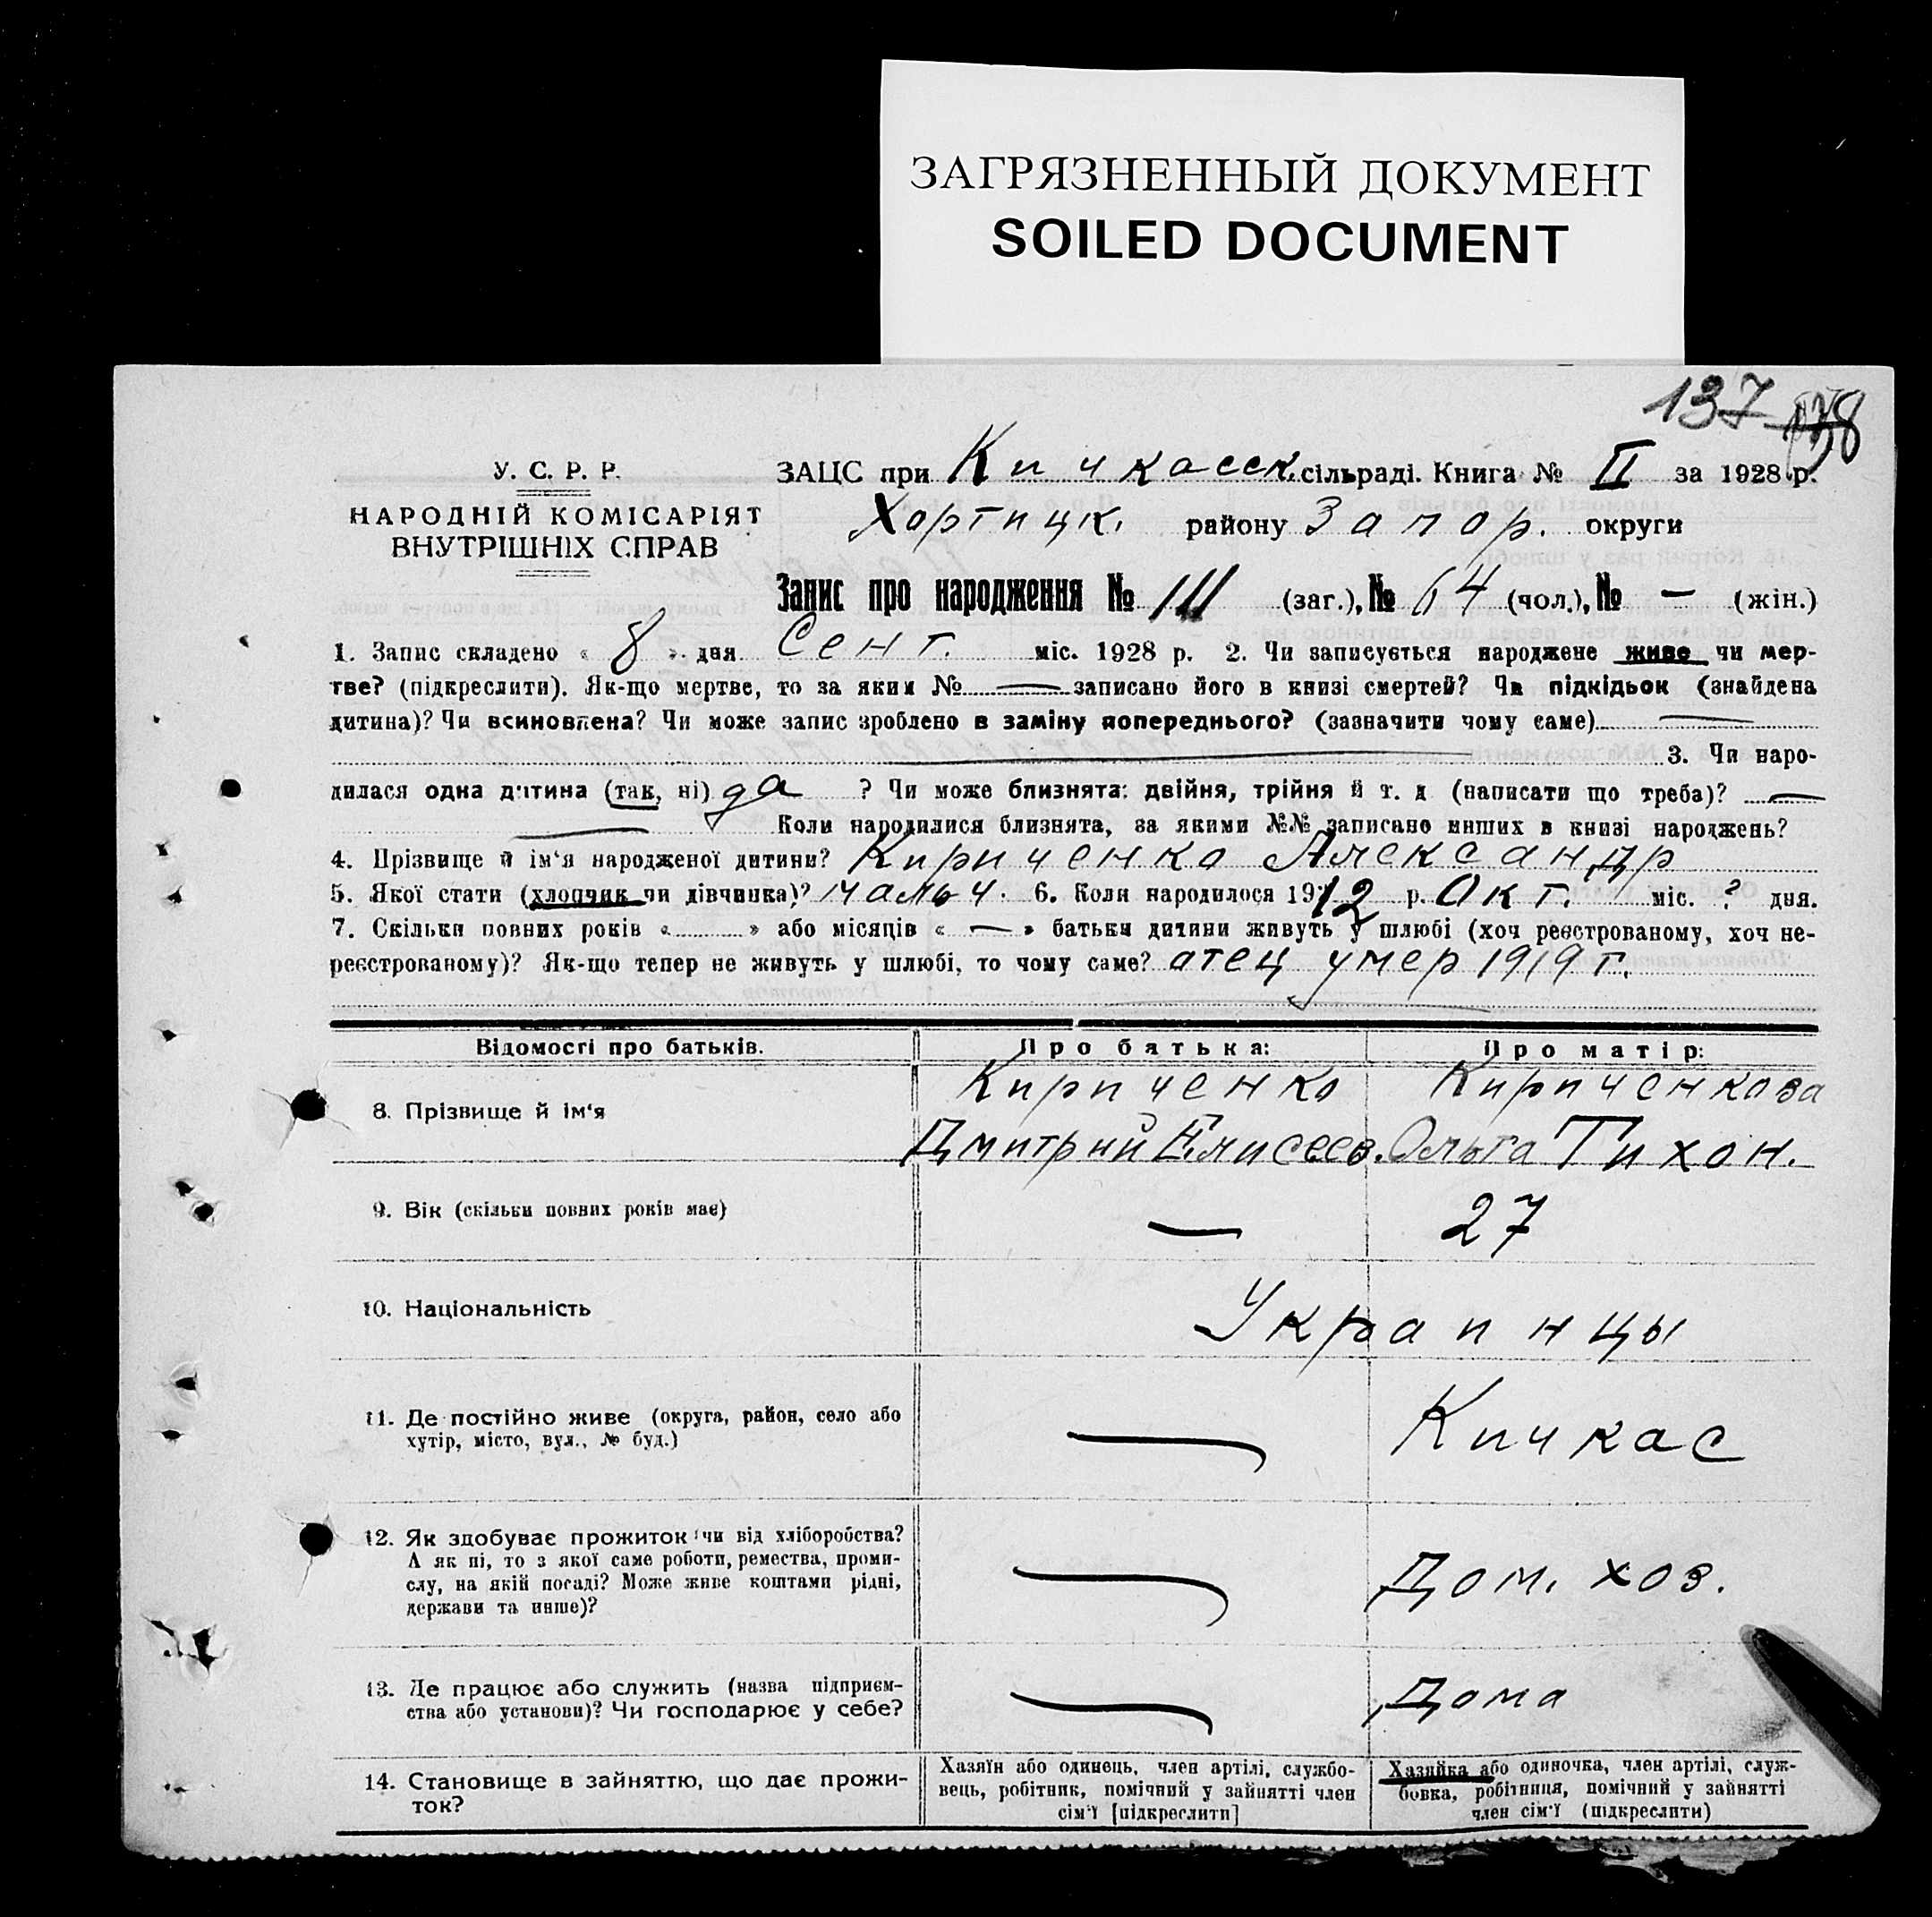 ЗАГРЯЗНЕННЫЙ ДОКУМЕНТ
SOILED DOCUMENT
137
У. С. Р. Р.
НАРОДНІЙ КОМІСАРІЯТ
ВНУТРІШНІХ СПРАВ
ЗАЦС при Кичкасск. сільраді. Книга № II за 1928 р.
Хортицк. району Запор. округи
Запис про народження № 111 (заг.), № 64 (чол.), № — (жін.)
1. Запис складено « 8 » дня Сент. міс. 1928 р. 2. Чи записується народжене живе чи мер-
тве? (підкреслити). Як-що мертве, то за яким № — записано його в книзі смертей? Чи підкідьок (знайдена
дитина)? Чи всиновлена? Чи може запис зроблено в заміну попереднього? (зазначити чому саме) —
— 3. Чи наро-
дилася одна дитина (так, ні) да ? Чи може близнята: двійня, трійня й т. д (написати що треба)? —
— Коли народилися близнята, за якими №№ записано инших в книзі народжень?
4. Прізвище й ім'я народженої дитини? Кириченко Александр
5. Якої стати (хлопчик чи дівчинка)? мальч. 6. Коли народилося 1912 р. Окт. міс. ? дня.
7. Скільки повних років « » або місяців « — » батьки дитини живуть у шлюбі (хоч реєстрованому, хоч не-
реєстрованому)? Як-що тепер не живуть у шлюбі, то чому саме? атец умер 1919 г.
Відомості про батьків.
Про батька:
Про матір:
8. Прізвище й ім'я
Кириченко
Дмитрий Елисеев.
Кириченкова
Ольга Тихон.
9. Вік (скільки повних років має)
—
27
10. Національність
Украинцы
11. Де постійно живе (округа, район, село або
хутір, місто, вул., № буд.)
—
Кичкас
12. Як здобуває прожиток чи від хліборобства?
А як ні, то з якої саме роботи, ремества, проми-
слу, на якій посаді? Може живе коштами рідні,
держави та инше)?
—
Дом. хоз.
13. Де працює або служить (назва підприєм-
ства або установи)? Чи господарює у себе?
—
Дома
14. Становище в зайняттю, що дає прожи-
ток?
Хазяїн або одинець, член артілі, службо-
вець, робітник, помічний у зайнятті член
сім'ї [підкреслити]
Хазяйка або одиночка, член артілі, служ-
бовка, робітниця, помічний у зайнятті
член сім'ї (підкреслити)